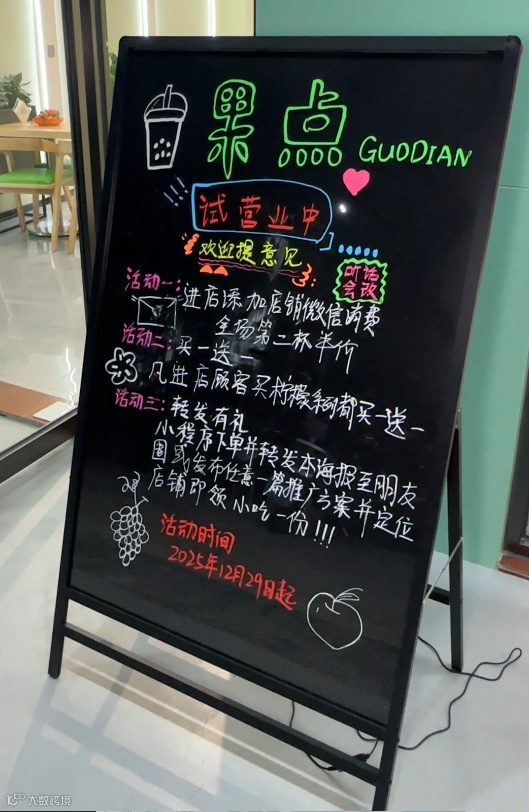 果点 GUODIAN
试营业中
欢迎提意见
听话
会改
活动一:进店添加店铺微信消费
全场第二杯半价
活动二:买一送一
凡进店顾客买柠檬系列都买一送一
活动三:转发有礼
小程序下单并转发本海报至朋友
圈或发布任意一篇推广方案并定位
店铺即领小吃一份!!!
活动时间
2025年12月29日起
大数跨境